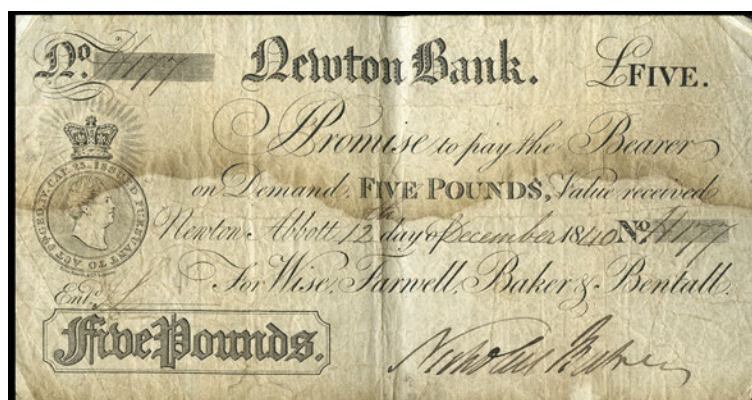 No. A177 Newton Bank. £FIVE.
I Promise to pay the Bearer
on Demand FIVE POUNDS, Value received
Newton Abbott 12th day of December 1840 No. A177
For Wise, Farwell, Baker & Bentall.
Entd.
Five Pounds.
Nicholas Baker
ISSUED PURSUANT TO ACT